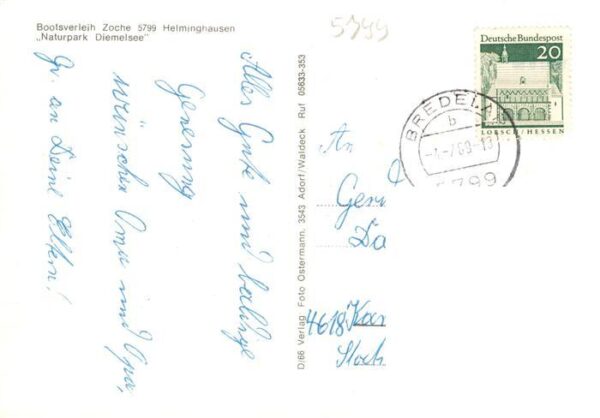 Bootsverleih Zoche 5799 Helminghausen
„Naturpark Diemelsee"
5799
Alles Gute und baldige
Genesung
wünschen Oma und Opa,
Gr. an Deine Eltern!
D/66 Verlag Foto Ostermann, 3543 Adorf/Waldeck Ruf 05633-353
Deutsche Bundespost
20
LORSCH/HESSEN
BREDELA
b
-7.69-13
5799
An
Geri
Da
4618 Kam
Stock